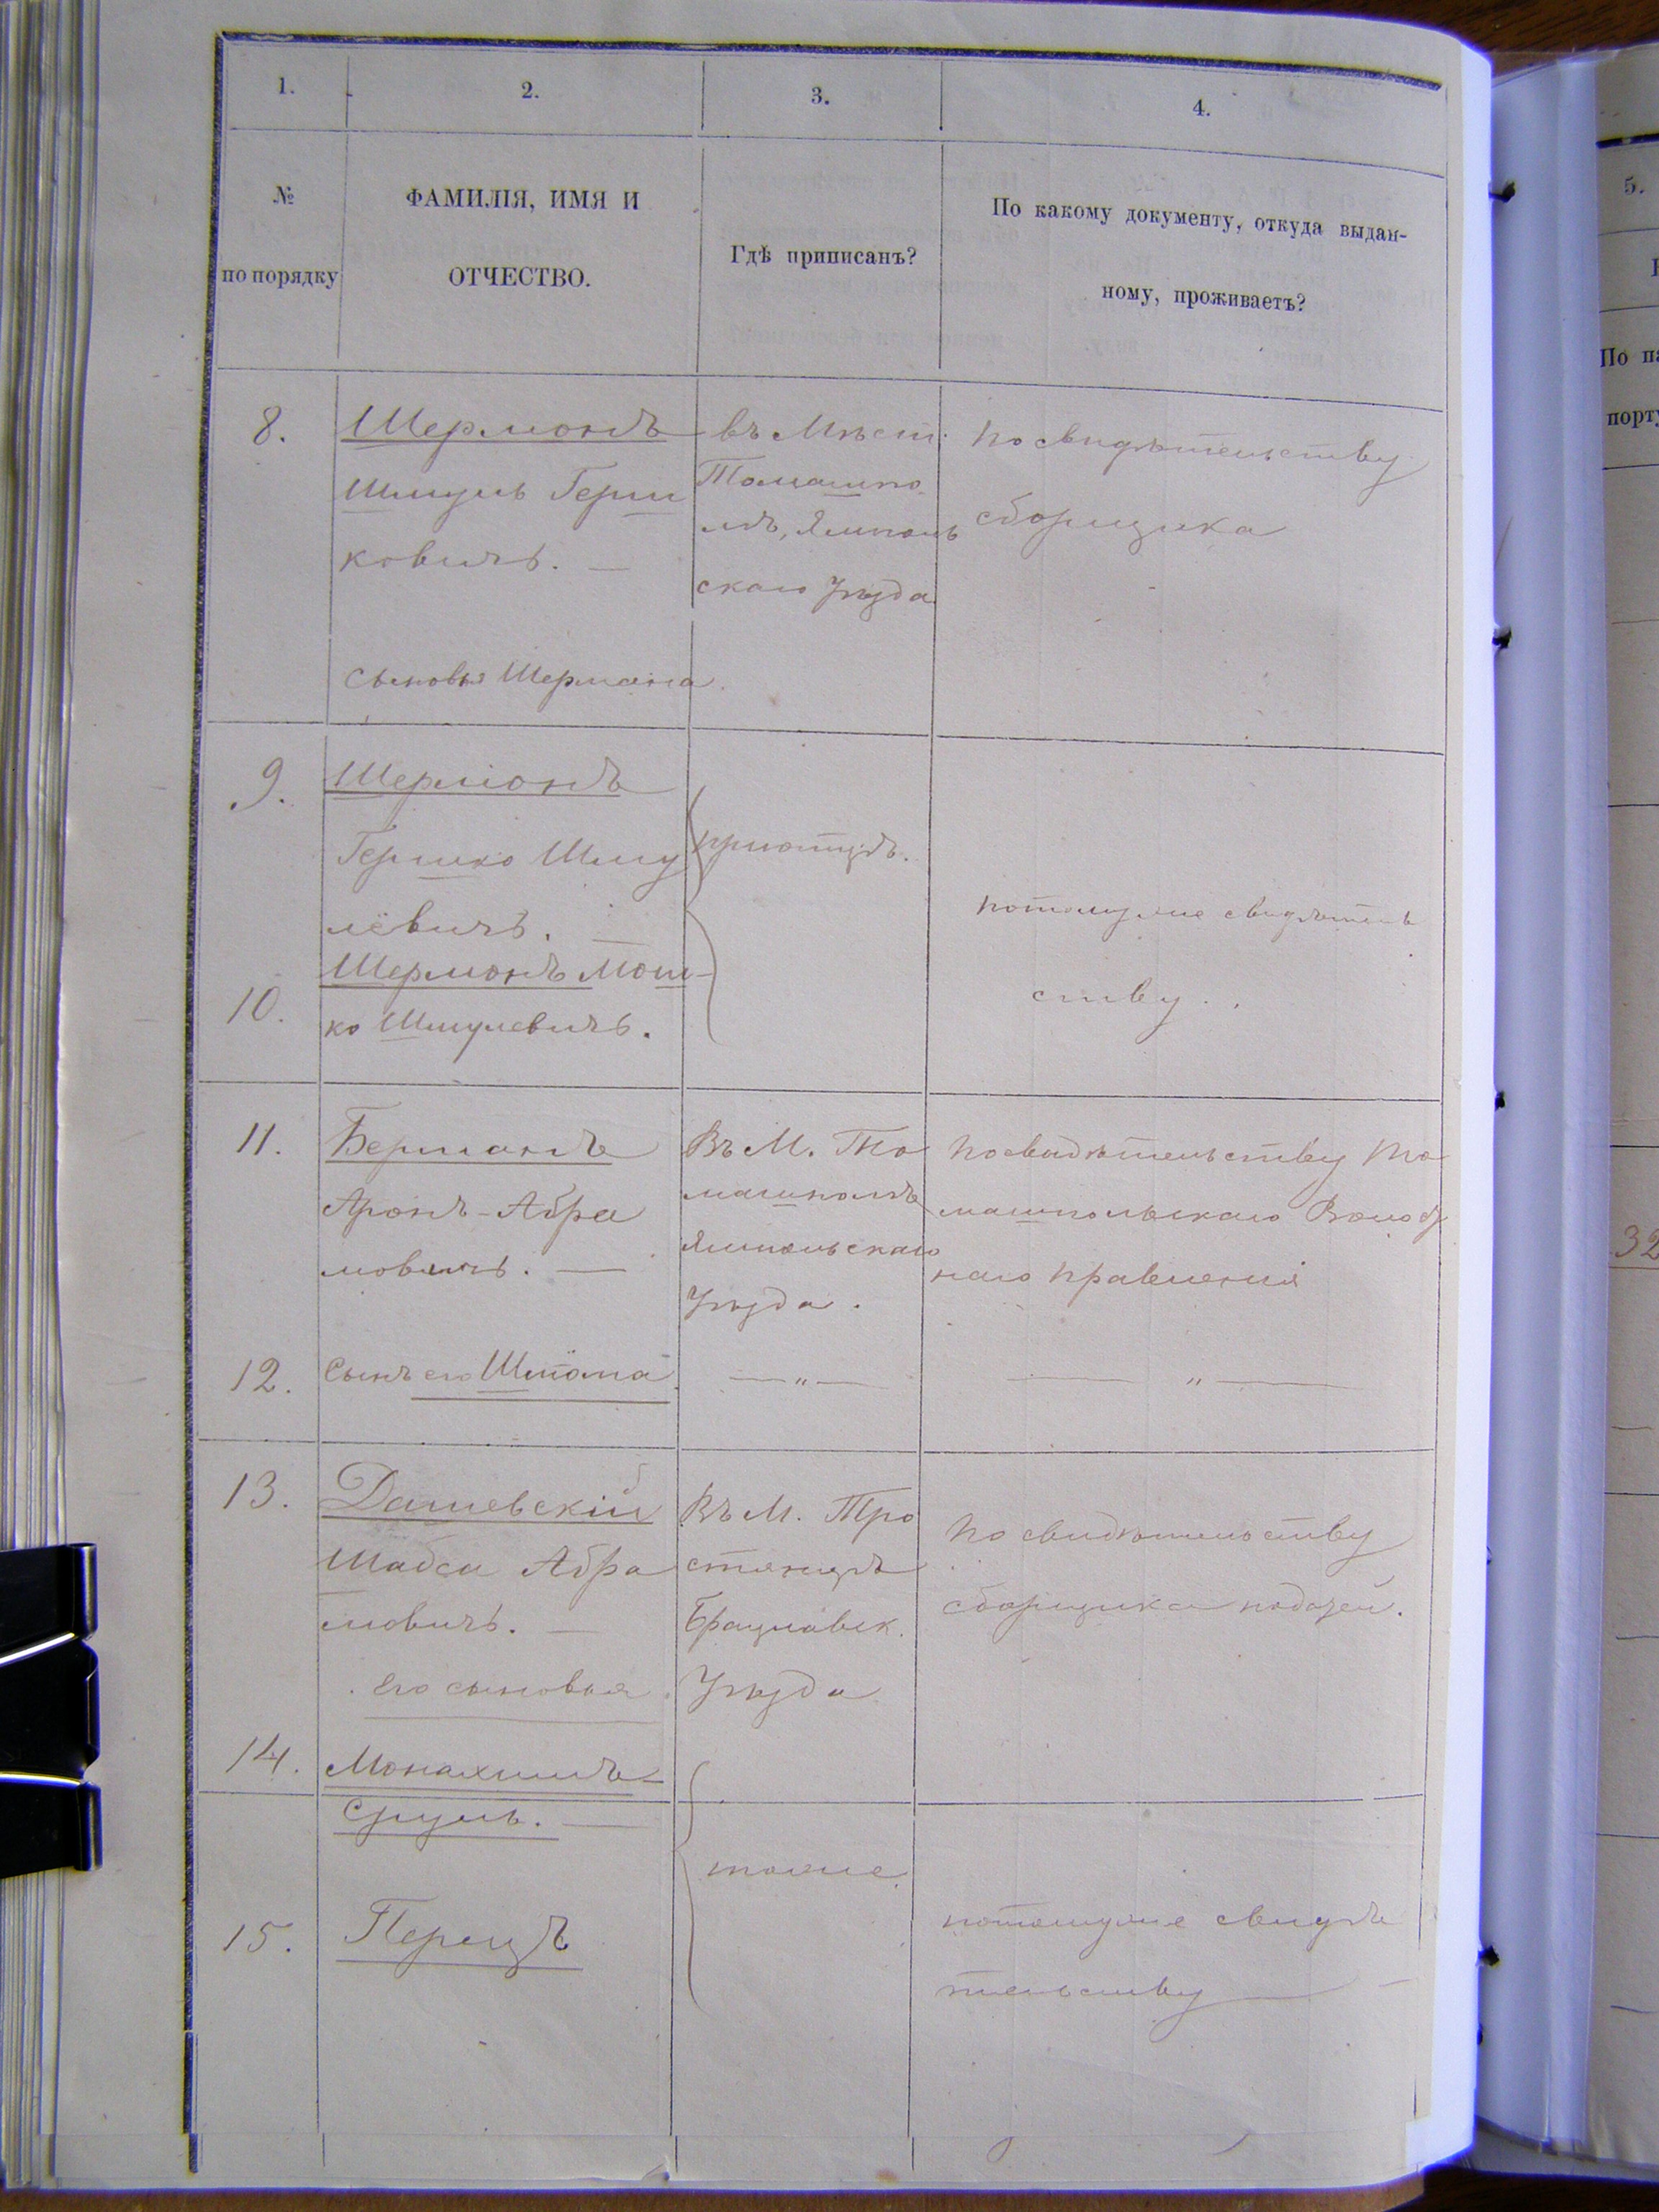 1.
2.
3.
4.
№
по порядку
ФАМИЛІЯ, ИМЯ И
ОТЧЕСТВО.
Гдѣ приписанъ?
По какому документу, откуда выдан-
ному, проживаетъ?
8.
Шермонъ
Шмуль Герш
ковичъ. —
сыновья Шермана.
въ Мѣст.
Томашпо
лѣ, Ямполь
скаго Уѣзда
по свидѣтельству
сборщика
9.
Шермонъ
Гершко Шму
лёвичъ. —
10.
Шермонъ Мош-
ко Шмулевичъ.
потомуже свидѣтель
ству.
11.
Берманъ
Аронъ-Абра
мовичъ. —
Въ М. То
машполѣ
Ямпольскаго
Уѣзда.
по свидѣтельству То
машпольскаго Волост
наго правленія
12.
Сынъ его Шлёма
— " —
— " —
13.
Дашевскій
Шабса Абра
мовичъ. —
его сыновья
Въ М. Тро
стянцѣ
Брацлавск.
Уѣзда
по свидѣтельству
сборщика податей.
14.
Монахимъ-
Сруль. —
тоже
15.
Перецъ
потомуже свидѣ
тельству —
5.
По па
порту
32